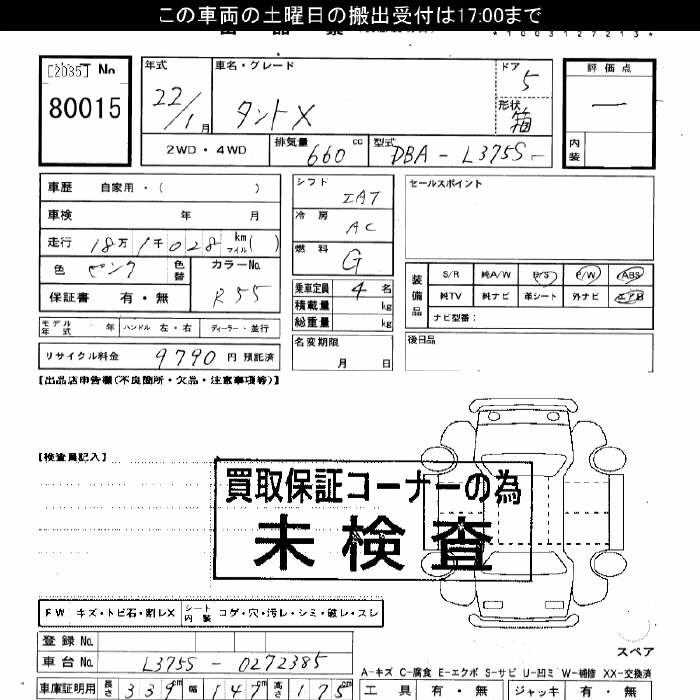 この車両の土曜日の搬出受付は17:00まで
*1003127213*
[2035] No
80015
年式 22/1月
車名・グレード タントX
ドア 5
形状 箱
2WD・4WD
排気量 660 cc
型式 DBA - L375S -
評価点 —
内装
車歴 自家用・( )
車検 年 月
走行 18万1千028 km マイル( )
色 ピンク 色替
カラーNo. R55
保証書 有・無
モデル年式 年 ハンドル 左・右 ディーラー・並行
リサイクル料金 9790 円 預託済
シフト IAT
冷房 AC
燃料 G
乗車定員 4 名
積載量 kg
総重量 kg
名変期限 月 日
セールスポイント
装備品
S/R 純A/W P/S P/W ABS
純TV 純ナビ 革シート 外ナビ エアB
ナビ型番:
後日品
【出品店申告欄(不良箇所・欠品・注意事項等)】
【検査員記入】
買取保証コーナーの為
未検査
FW キズ・トビ石・割レX シート内装 コゲ・穴・汚レ・シミ・破レ・スレ
登録 No.
車台 No. L375S - 0272385
車庫証明用 長さ 339 cm 幅 147 cm 高さ 175 cm
スペア
A-キズ C-腐食 E-エクボ S-サビ U-凹ミ W-補修 XX-交換済
工具 有・無 ジャッキ 有・無